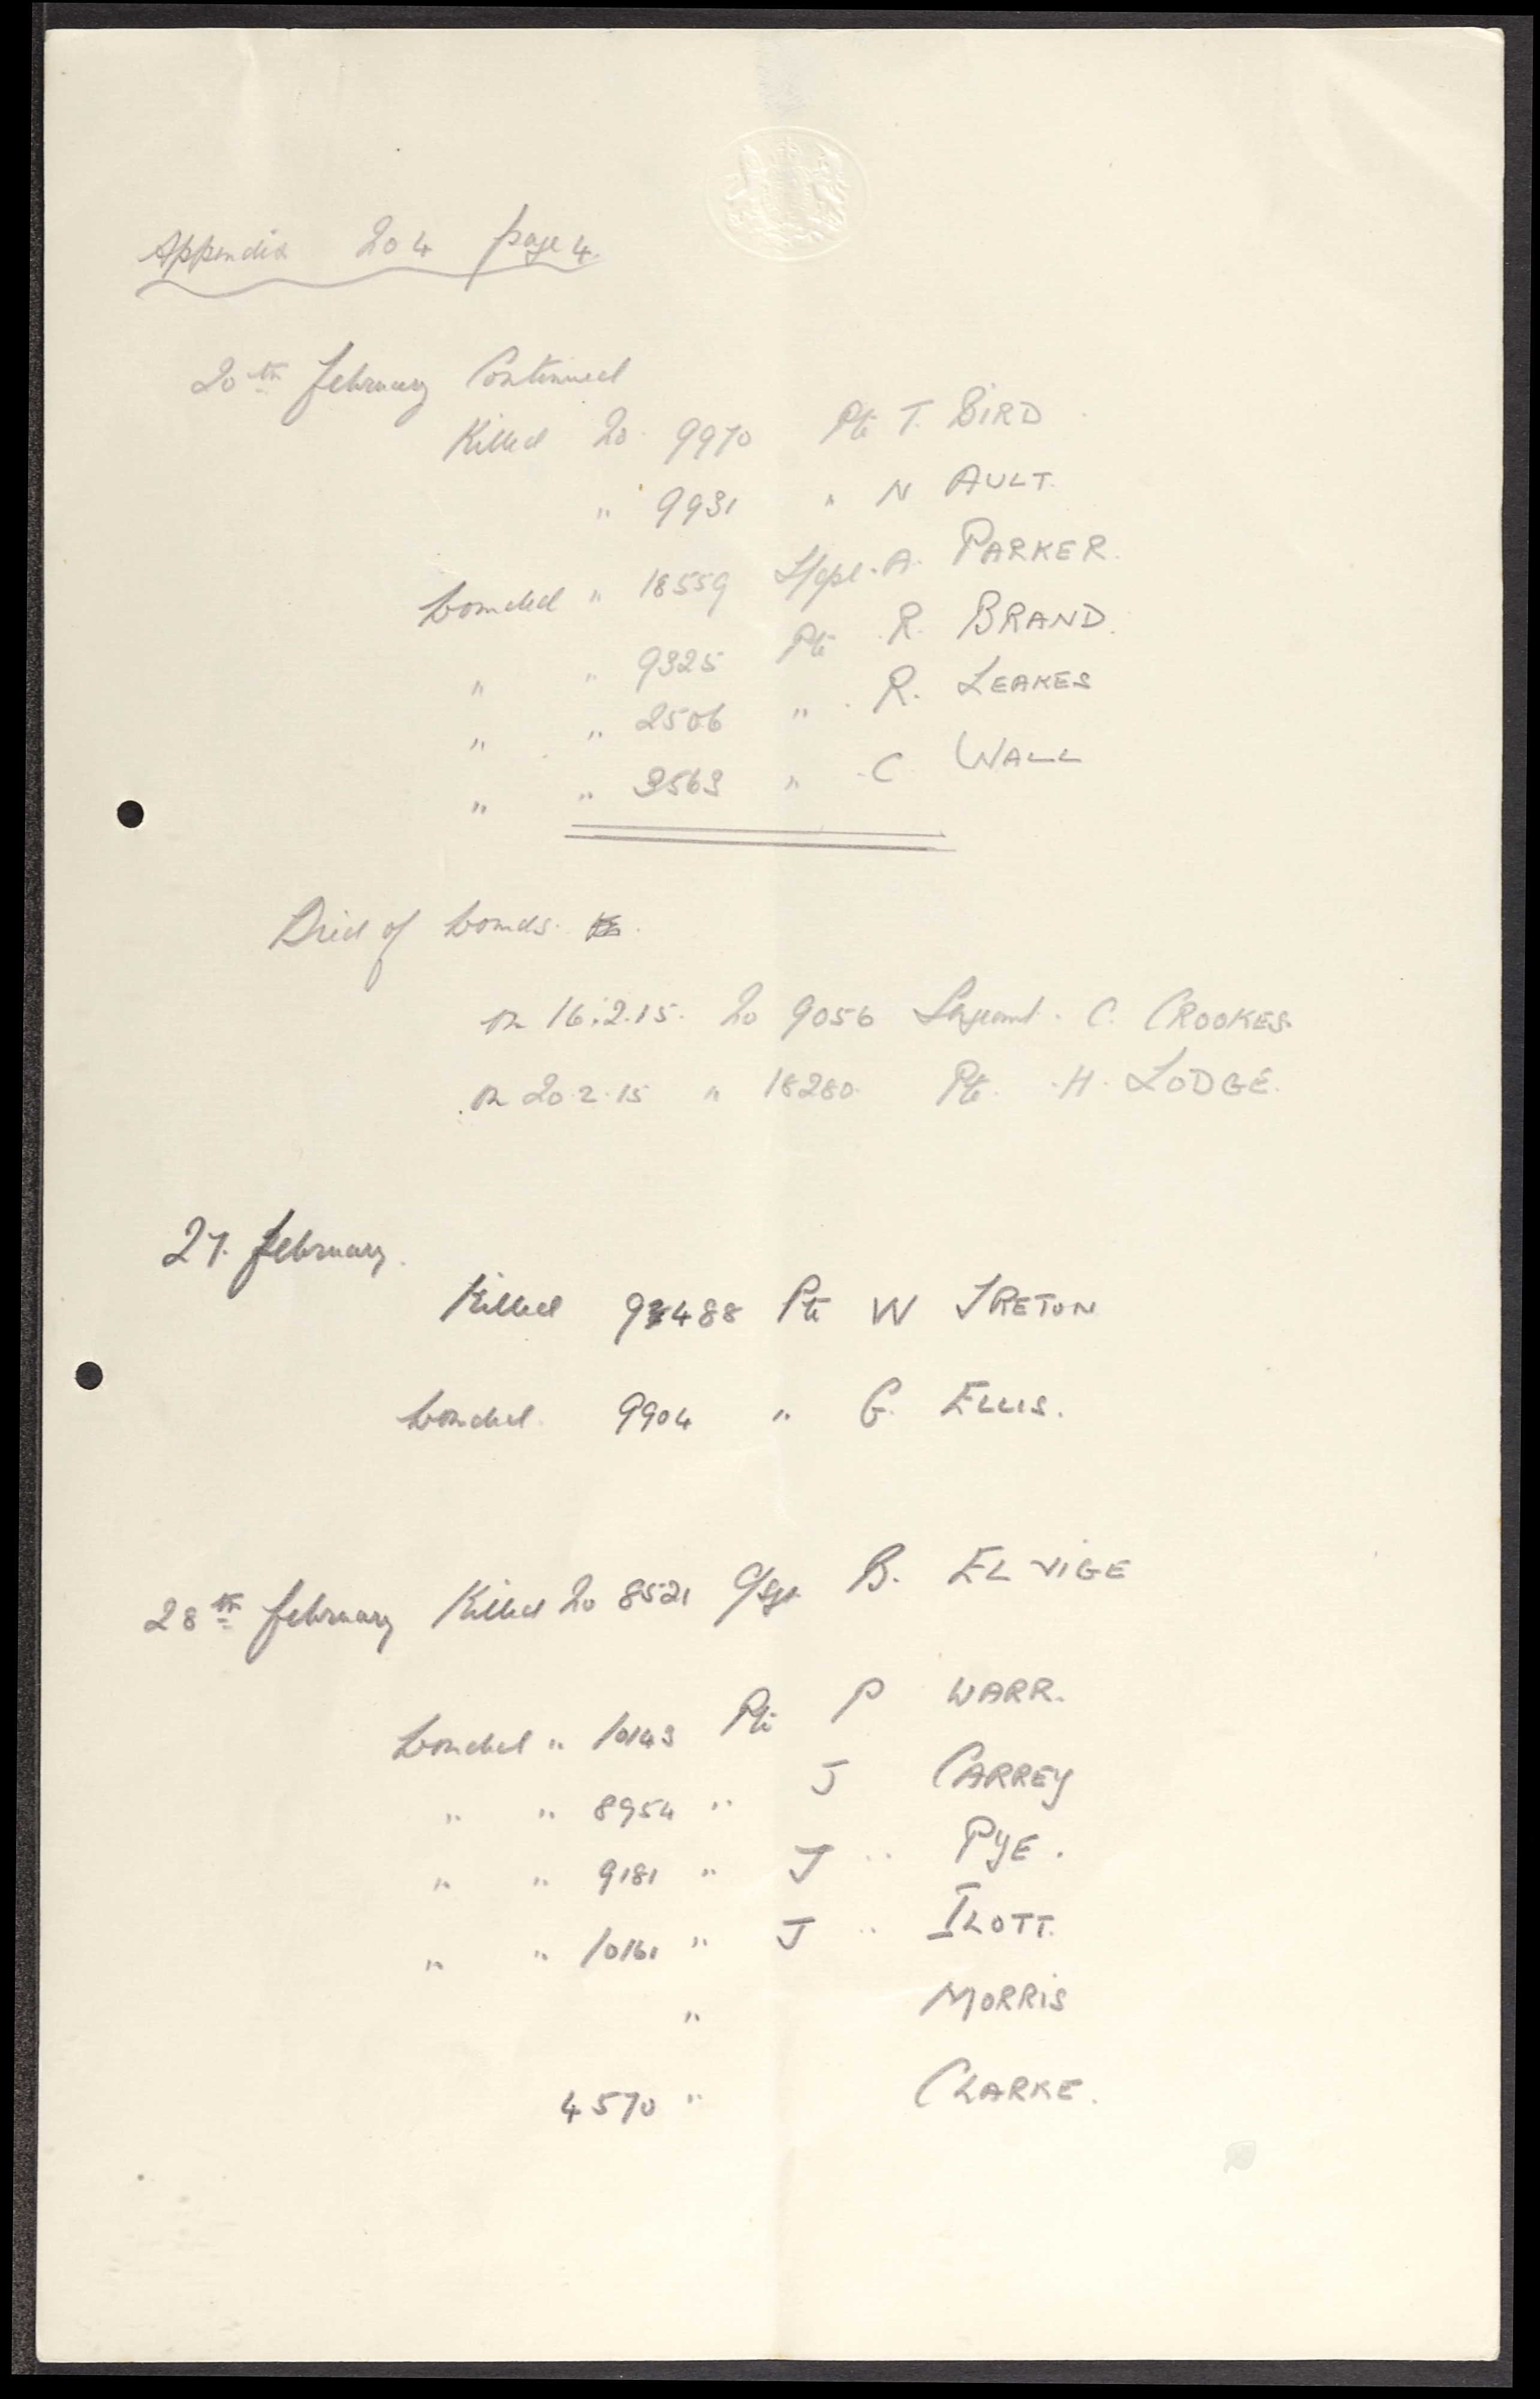 Appendix No 4 page 4.
20th February Continued
Killed No 9970 Pte T. BIRD
" 9931 " N AULT.
Wounded " 18559 L/Cpl. A. PARKER.
" " 9325 Pte R. BRAND.
" " 2506 " R. LEAKES
" " 3563 " C WALL
Died of Wounds.
on 16.2.15. No 9056 Sergeant. C. CROOKES.
on 20.2.15 " 18280 Pte. H. LODGE.
27. February.
Killed 9488 Pte W IRETON
Wounded. 9904 " G. ELLIS.
28th February Killed No 8521 C/Sgt B. ELVIGE
Wounded " 10143 Pte P WARR.
" " 8954 " J CARREY
" " 9181 " J " PYE.
" " 10161 " J " ILOTT.
" MORRIS
4570 " CLARKE.